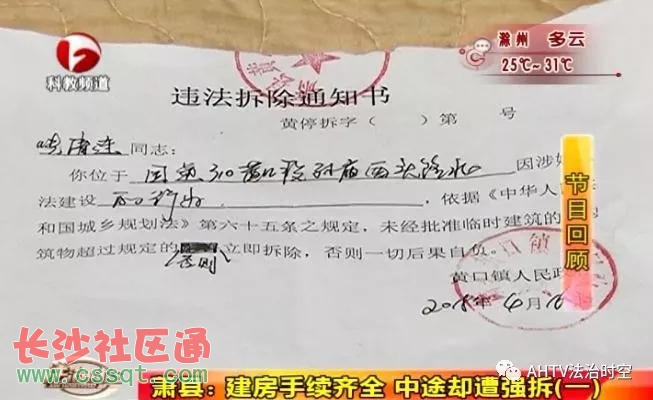 科教频道
滁州 多云
25℃~31℃
违法拆除通知书
黄停拆字（ ）第 号
同志：
你位于 因涉
法建设 ，依据《中华人
和国城乡规划法》第六十五条之规定，未经批准临时建筑的
筑物超过规定的 立即拆除，否则一切后果自负。
否则
黄口镇人民政
2018年4月
口镇
节目回顾
长沙社区通
www.cssqt.com
AHTV法治时空
萧县：建房手续齐全 中途却遭强拆(一)